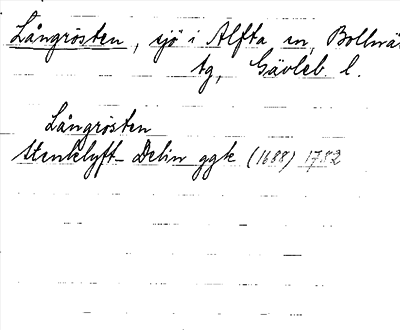 Långrösten, sjö i Alfta sn, Bollnä
tg, Gävleb. l.
Långrösten
Stenklyft- Delin ggk (1688) 1782